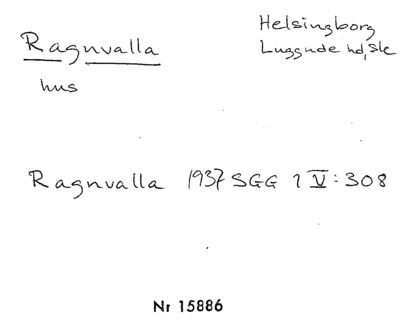 Ragnvalla
Helsingborg
Luggude hd, Sk
hus
Ragnvalla 1937 SGG 1 V:308
Nr 15886